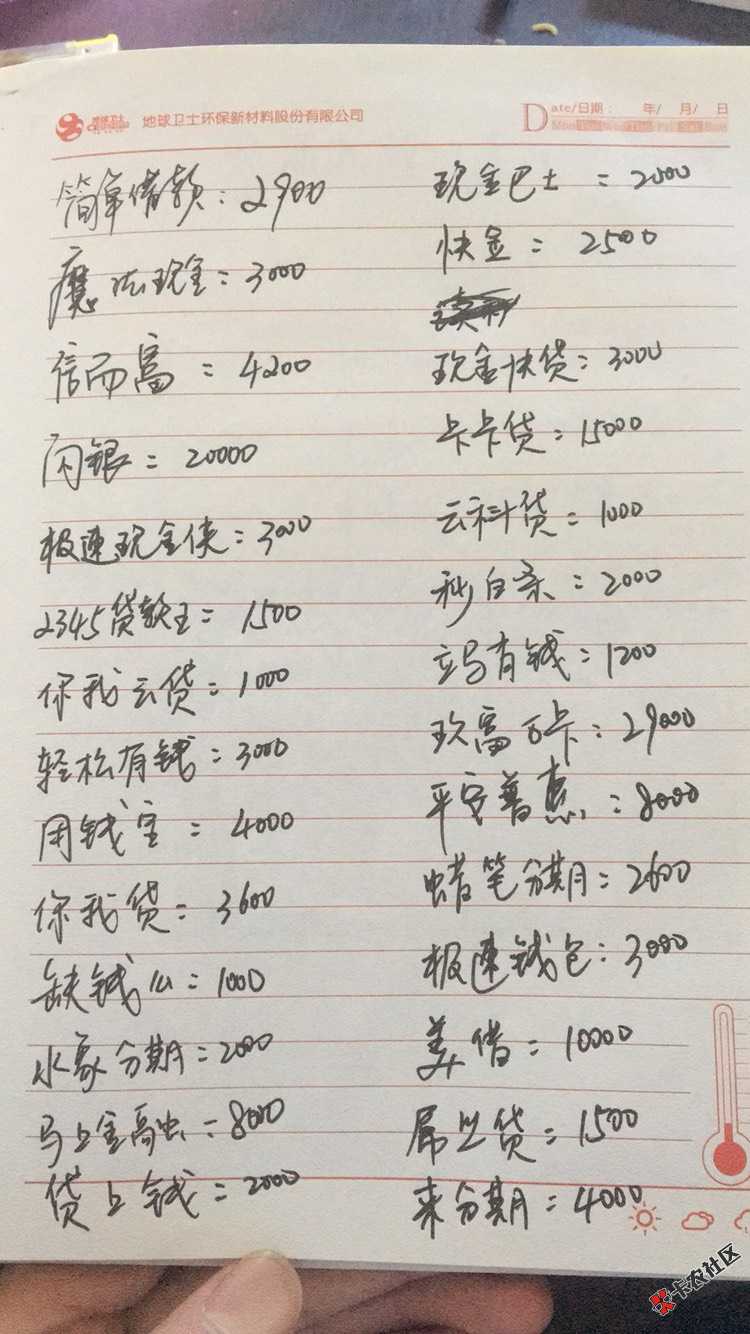 地球卫士环保新材料股份有限公司
Date/日期: 年/ 月/ 日
简单借款:2900
魔法现金=3000
信而富=4200
闪银=20000
极速现金侠=3000
2345贷款王=1500
你我云贷=1000
轻松有钱=3000
用钱宝=4000
你我贷=3600
缺钱么=1000
水象分期=2000
马上金融=8000
贷上钱=2000
现金巴士=2000
快金=2500
现金快贷=3000
卡卡贷=15000
云科贷=1000
秒白条=2000
立马有钱=1200
玖富万卡=29000
平安普惠=8000
蜡笔分期=2600
极速钱包:3000
美借=10000
屌丝贷=1500
来分期=4000
卡农社区